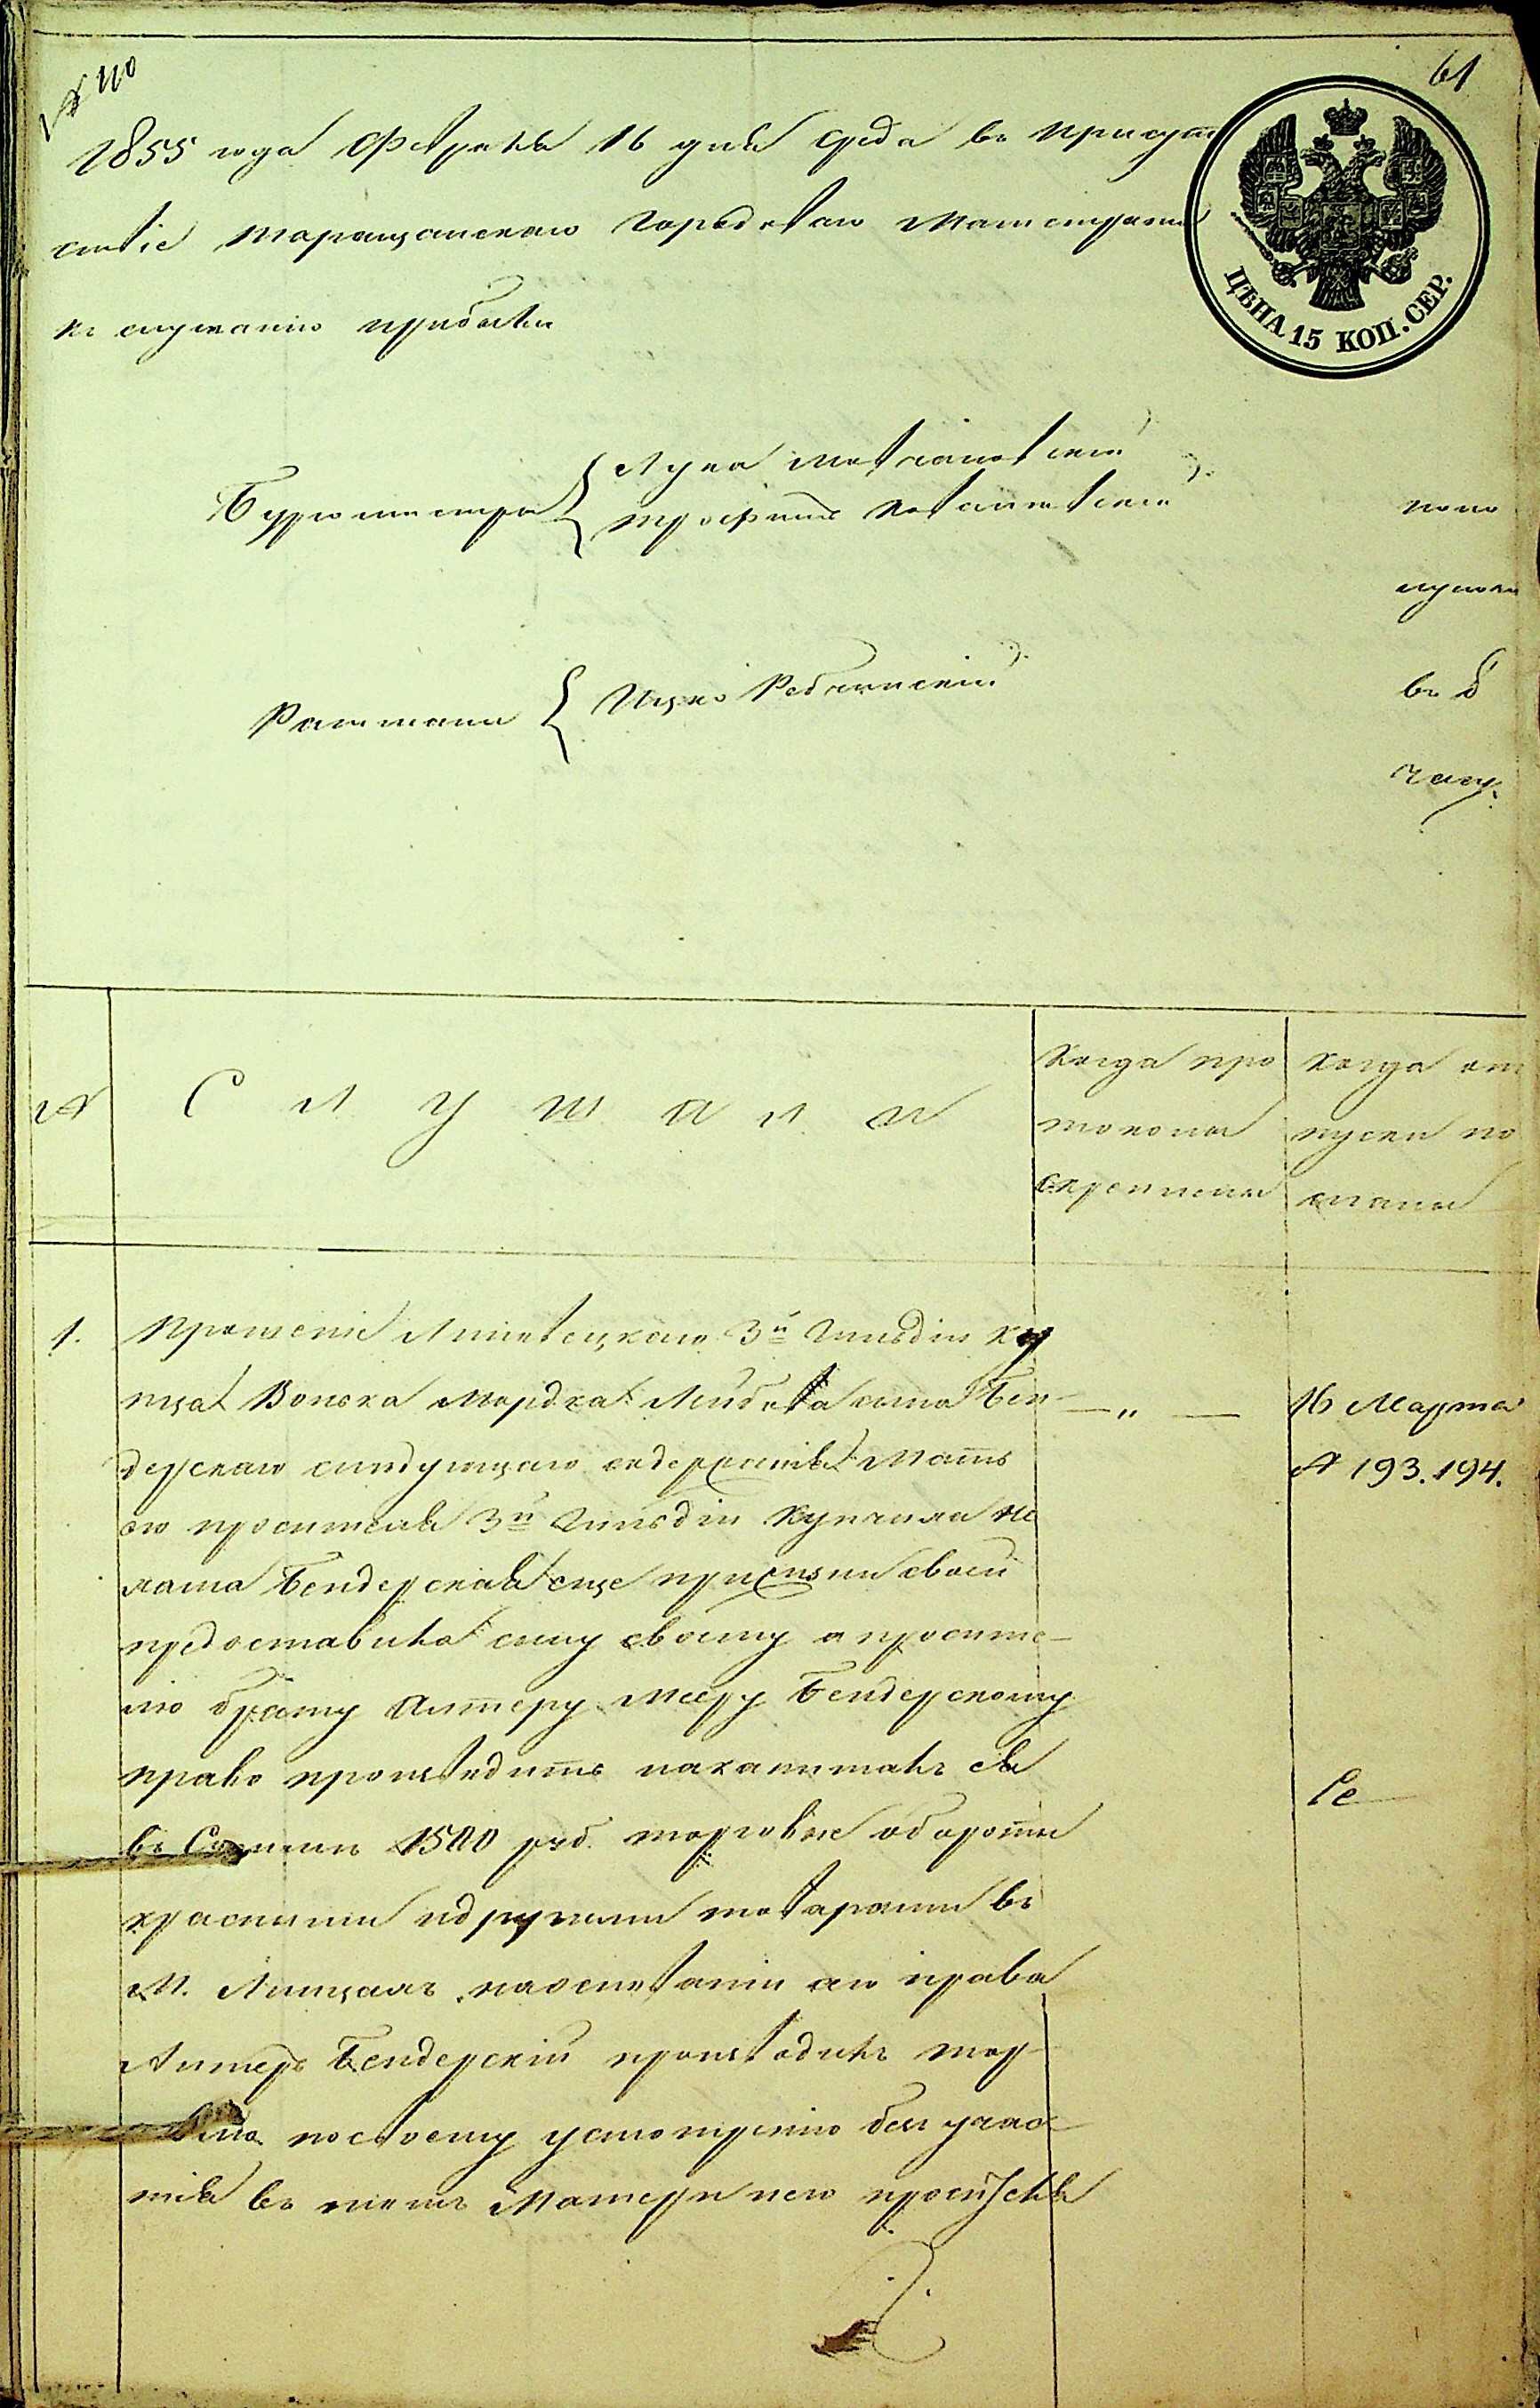 61
1855 года Февраля 16 дня среда въ присут
ствіе Таращанскаго Городоваго Магистрата
къ слушанію прибыли
ЦѢНА 15 КОП. СЕР.
Бургомистры { Лука
Трофимъ
попо
лудни
въ
часу
Ратманы { Ицко
№ Слушали
Когда про
токолы
скреплены
Когда от
пуски по
сланы
1. Прошеніе 3й Гильдіи ку
пца Волька Мордка Лейбова сына Бен
дерскаго следующаго содержанія Мать
его просителя 3й Гильдіи купчиха
Бендерская еще при жизни своей
предоставила сыну своему а просите
лю брату Алтеру Мееру Бендерскому
право производить на капиталъ ея
въ Сумме 1500 руб. торговые обороты
красными и другими товарами въ
М. на основаніи его права
Алтеръ Бендерскій производилъ тор
по своему усмотренію безъ уча
тія въ томъ Матери и его просителя
16 Марта
№ 193.194.